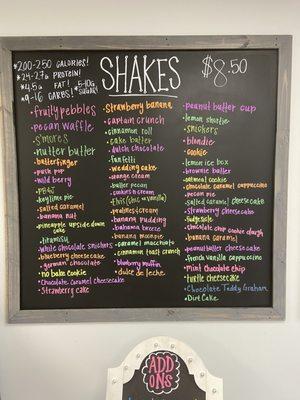 *200-250 CALORIES!
*24-27g PROTEIN!
*4.5g FAT!
*9-16 CARBS!
SHAKES
$8.50
•fruity pebbles
•pecan waffle
•s'mores
•nutter butter
•butterfinger
•push pop
•wild berry
•PB&J
•key lime pie
•salted caramel
•banana nut
•pineapple upside down cake
•tiramisu
•white chocolate snickers
•blueberry cheesecake
•german chocolate
•no bake cookie
•Chocolate caramel cheesecake
•Strawberry cake
•Strawberry banana
•captain crunch
•cinnamon roll
•cake batter
•dutch chocolate
•funfetti
•wedding cake
•orange cream
•butter pecan
•cookies n cream
•banana pudding
•bahama breeze
•banana moonpie
•caramel macchiato
•cinnamon toast crunch
•blueberry muffin
•dulce de leche
•peanut butter cup
•lemon shortie
•snickers
•blondie
•cookie
•lemon ice box
•brownie batter
•oatmeal cookie
•chocolate caramel cappuccino
•pecan pie
•salted caramel cheesecake
•strawberry cheesecake
•fudgesicle
•chocolate chip cookie dough
•banana caramel
•peanut butter cheesecake
•french vanilla cappuccino
•mint chocolate chip
•turtle cheesecake
•Chocolate Teddy Graham
•Dirt Cake
ADD
ONS